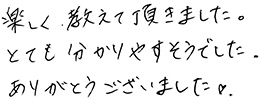 楽しく教えて頂きました。
とても分かりやすそうでした。
ありがとうございました♡。